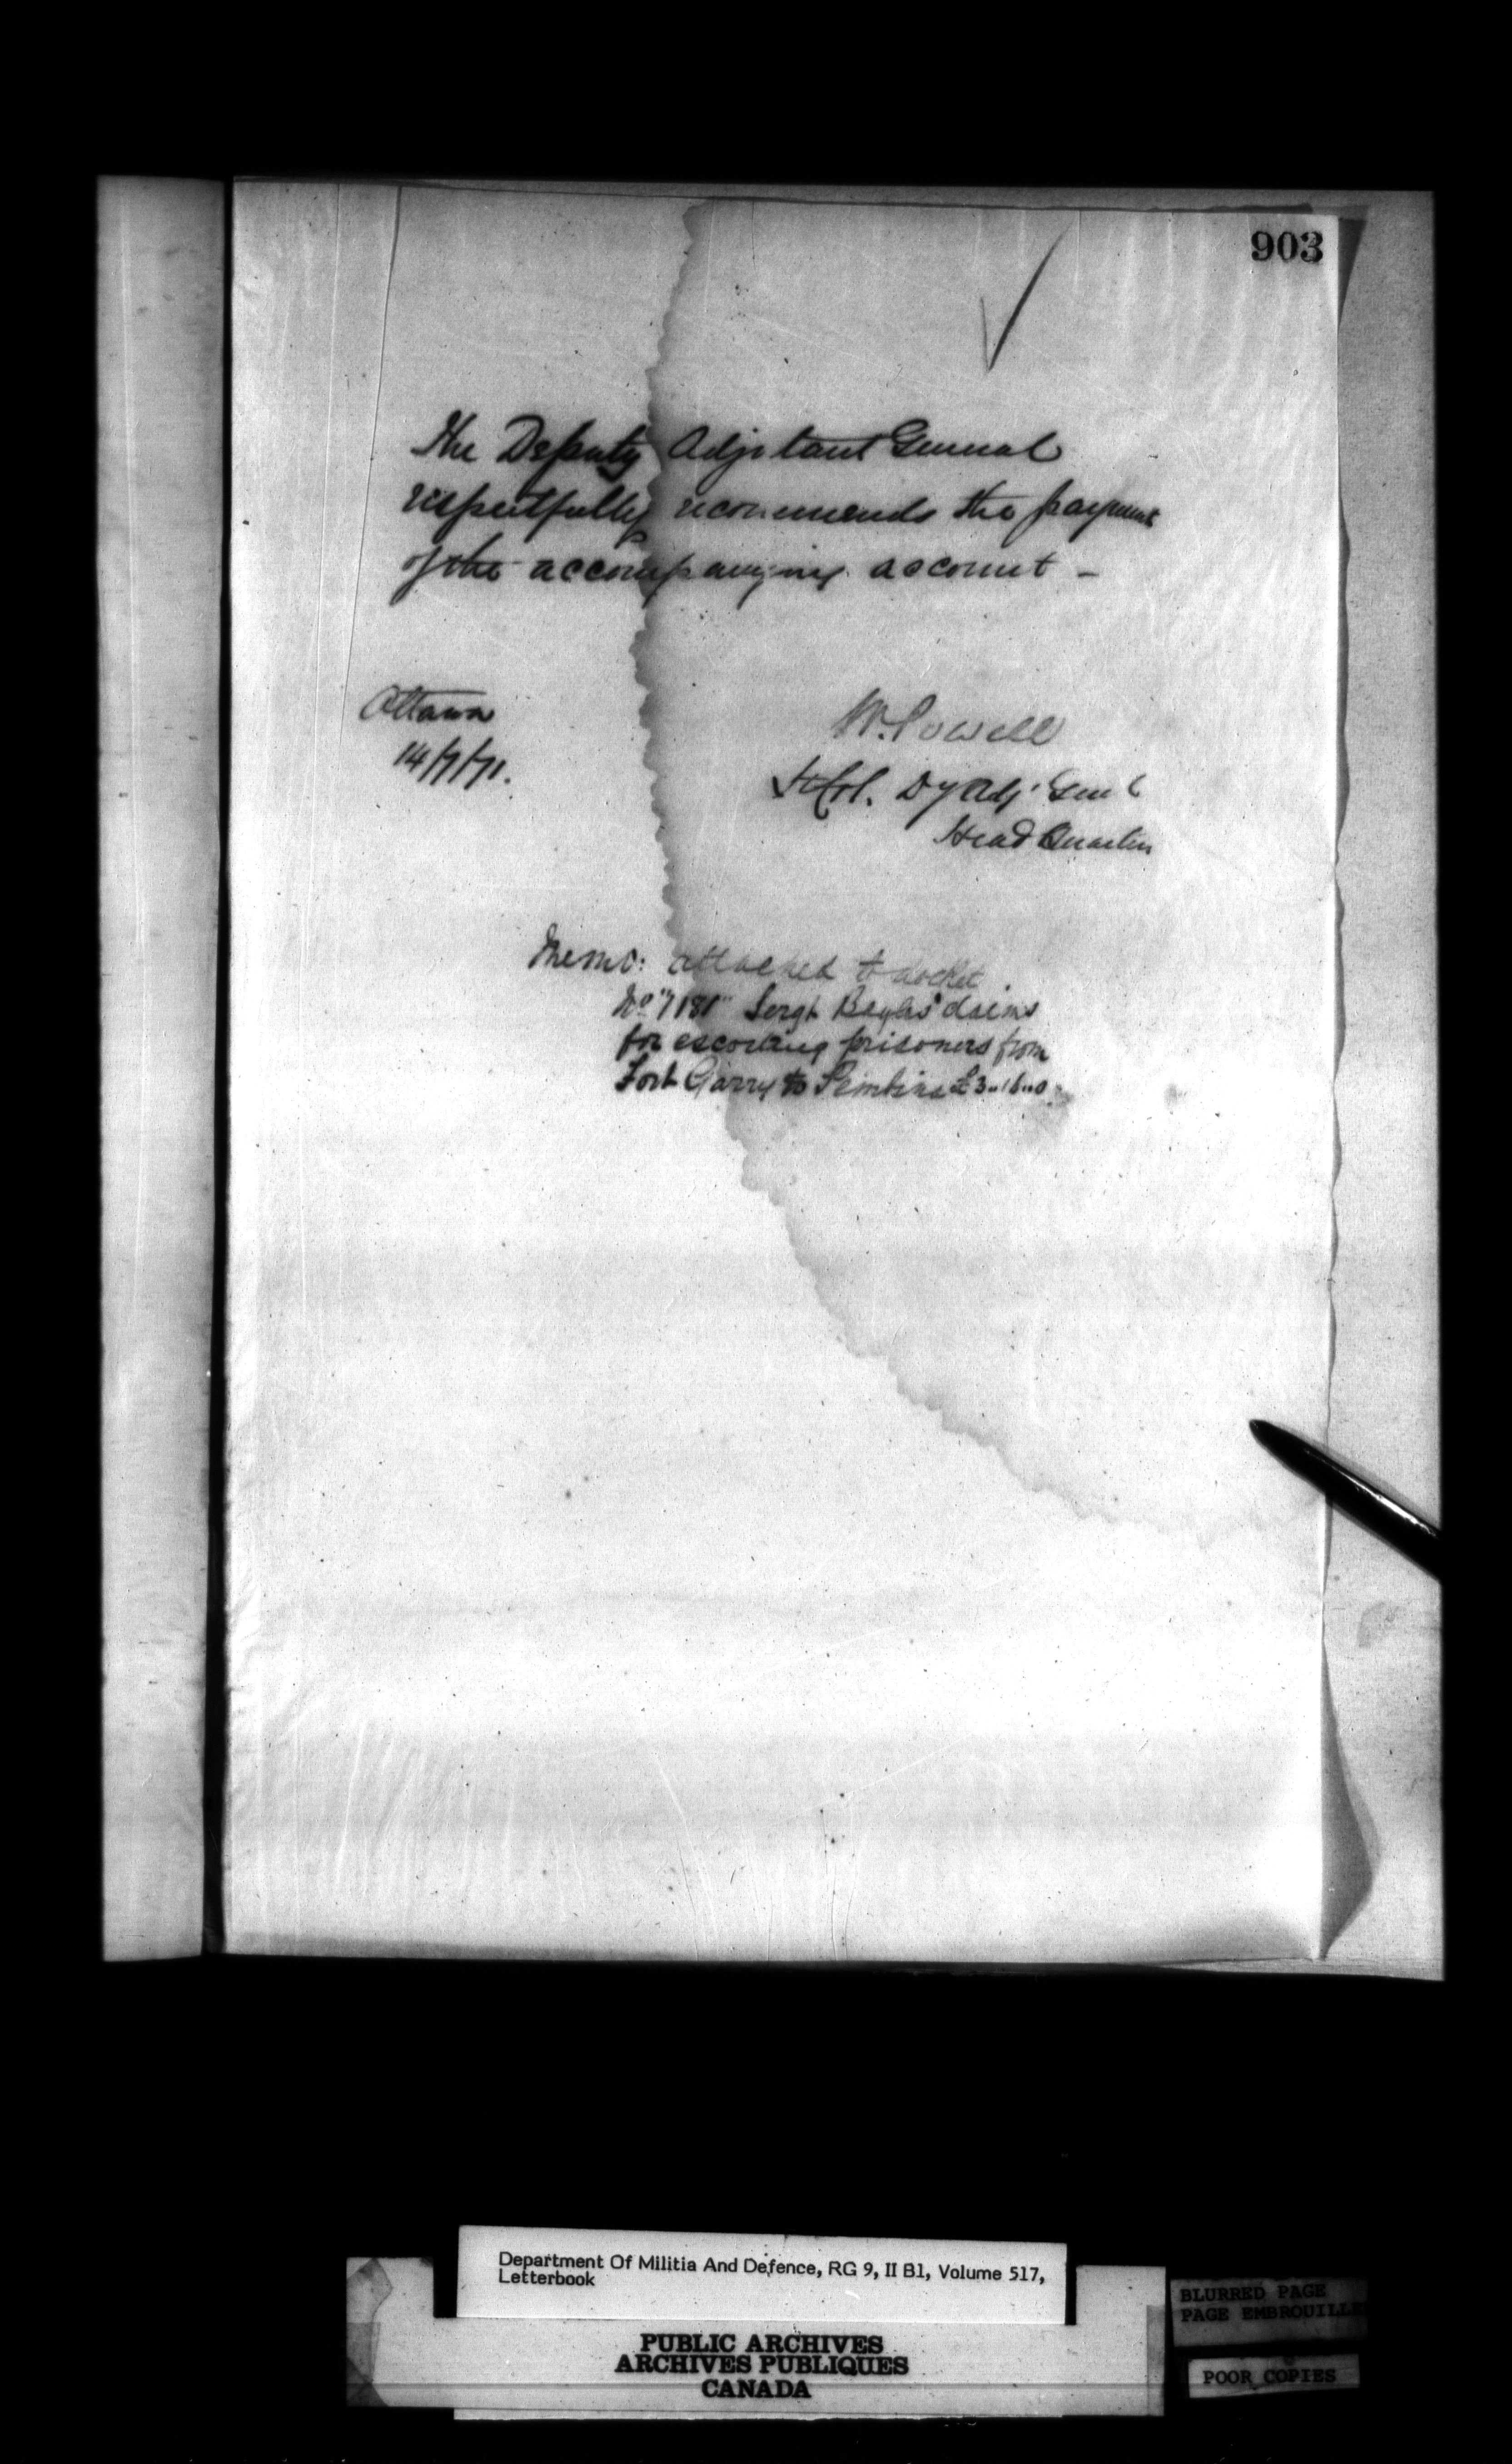 903
The Deputy Adjutant General
respectfully recommends the payment
of the accompanying account -
Ottawa
14/7/71.
W. Powell
Lt Col. Dy Adj. Genl
Head Quarters
Memo: attached to docket
No "7181" Sergt claims
for escorting prisoners from
Fort Garry to Pembina £3..16..0.
Department Of Militia And Defence, RG 9, II B1, Volume 517,
Letterbook
PUBLIC ARCHIVES
ARCHIVES PUBLIQUES
CANADA
BLURRED PAGE
PAGE EMBROUILLE
POOR COPIES